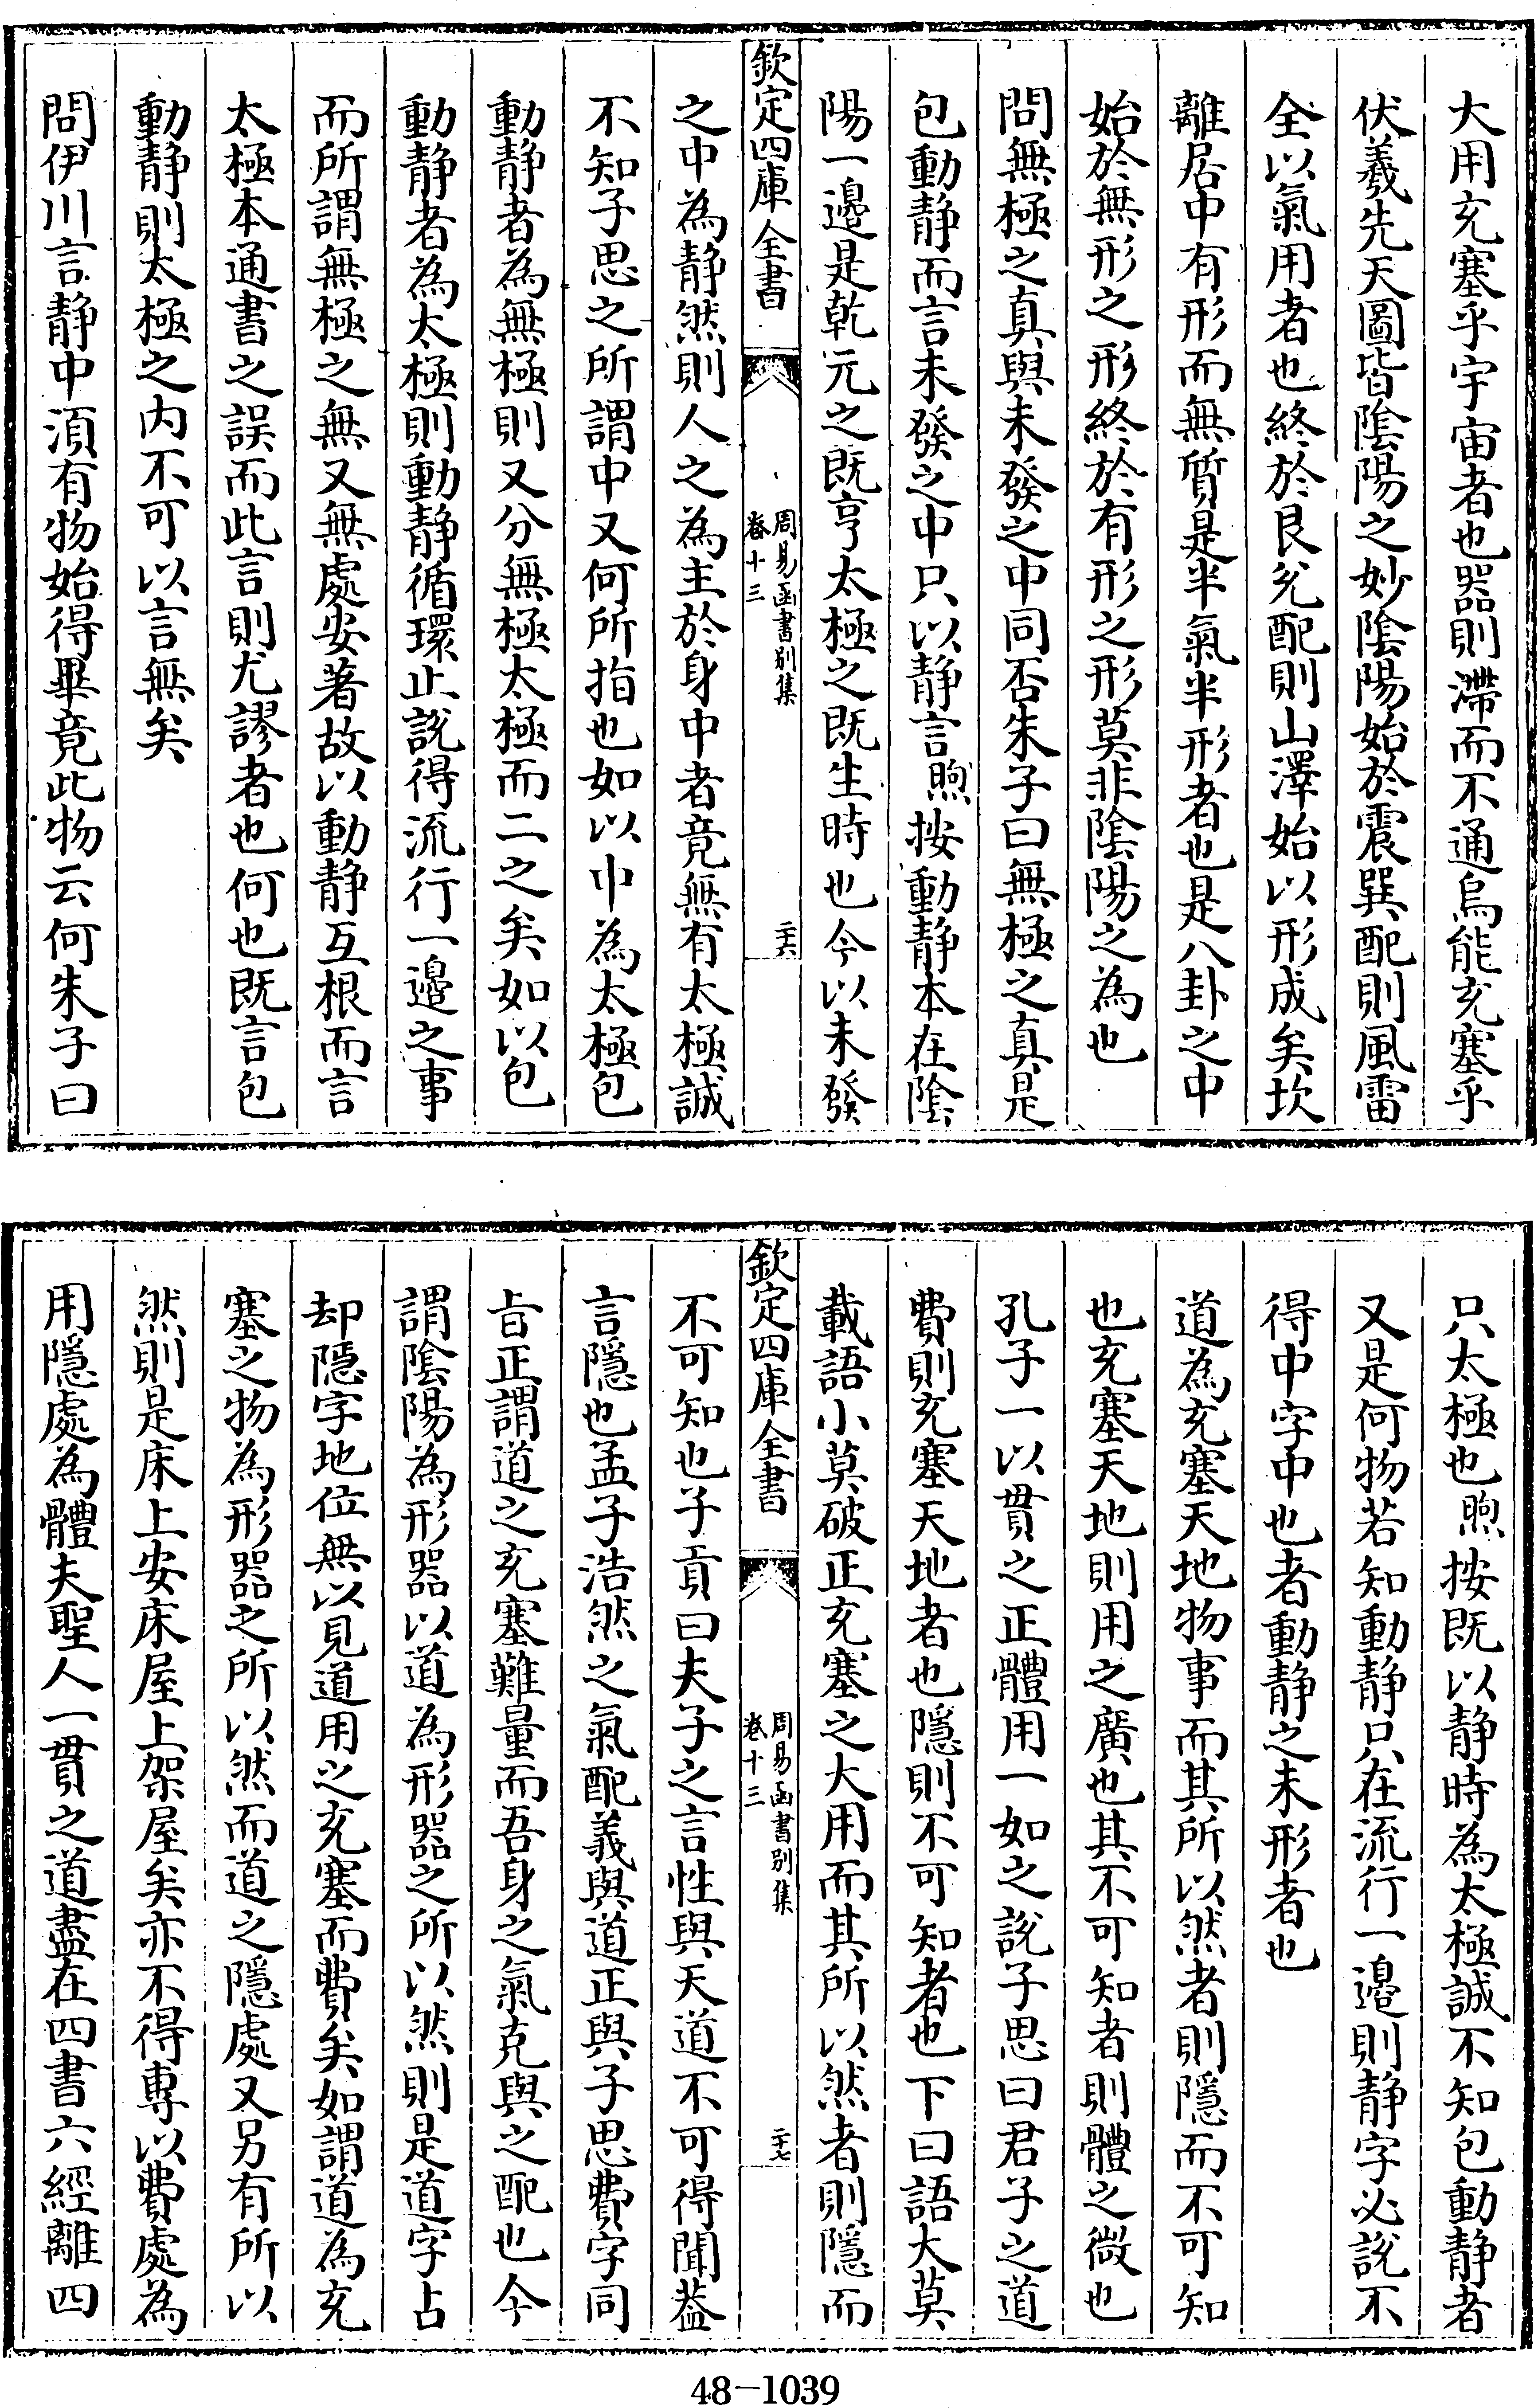 大用充塞乎宇宙者也器則滯而不通烏能充塞乎
伏羲先天圖皆陰陽之妙陰陽始於震巽配則風雷
全以氣用者也終於艮兊配則山澤始以形成矣坎
離居中有形而無質是半氣半形者也是八卦之中
始於無形之形終於有形之形莫非陰陽之為也
問無極之真與未發之中同否朱子曰無極之真是
包動静而言未發之中只以静言煦按動静本在陰
陽一邉是乾元之既亨太極之既生時也今以未發
欽定四庫全書
周易函書别集
卷十三
二十六
之中為静然則人之為主於身中者竟無有太極誠
不知子思之所謂中又何所指也如以中為太極包
動静者為無極則又分無極太極而二之矣如以包
動静者為太極則動静循環止說得流行一邉之事
而所謂無極之無又無處安著故以動静互根而言
太極本通書之誤而此言則尤謬者也何也既言包
動静則太極之内不可以言無矣
問伊川言静中須有物始得畢竟此物云何朱子曰
只太極也煦按既以静時為太極誠不知包動静者
又是何物若知動静只在流行一邉則静字必說不
得中字中也者動静之未形者也
道為充塞天地物事而其所以然者則隱而不可知
也充塞天地則用之廣也其不可知者則體之微也
孔子一以貫之正體用一如之說子思曰君子之道
費則充塞天地者也隱則不可知者也下曰語大莫
載語小莫破正充塞之大用而其所以然者則隱而
欽定四庫全書
周易函書别集
卷十三
二十七
不可知也子貢曰夫子之言性與天道不可得聞葢
言隱也孟子浩然之氣配義與道正與子思費字同
旨正謂道之充塞難量而吾身之氣克與之配也今
謂陰陽為形器以道為形器之所以然則是道字占
却隱字地位無以見道用之充塞而費矣如謂道為充
塞之物為形器之所以然而道之隱處又另有所以
然則是床上安床屋上架屋矣亦不得專以費處為
用隱處為體夫聖人一貫之道盡在四書六經離四
48-1039